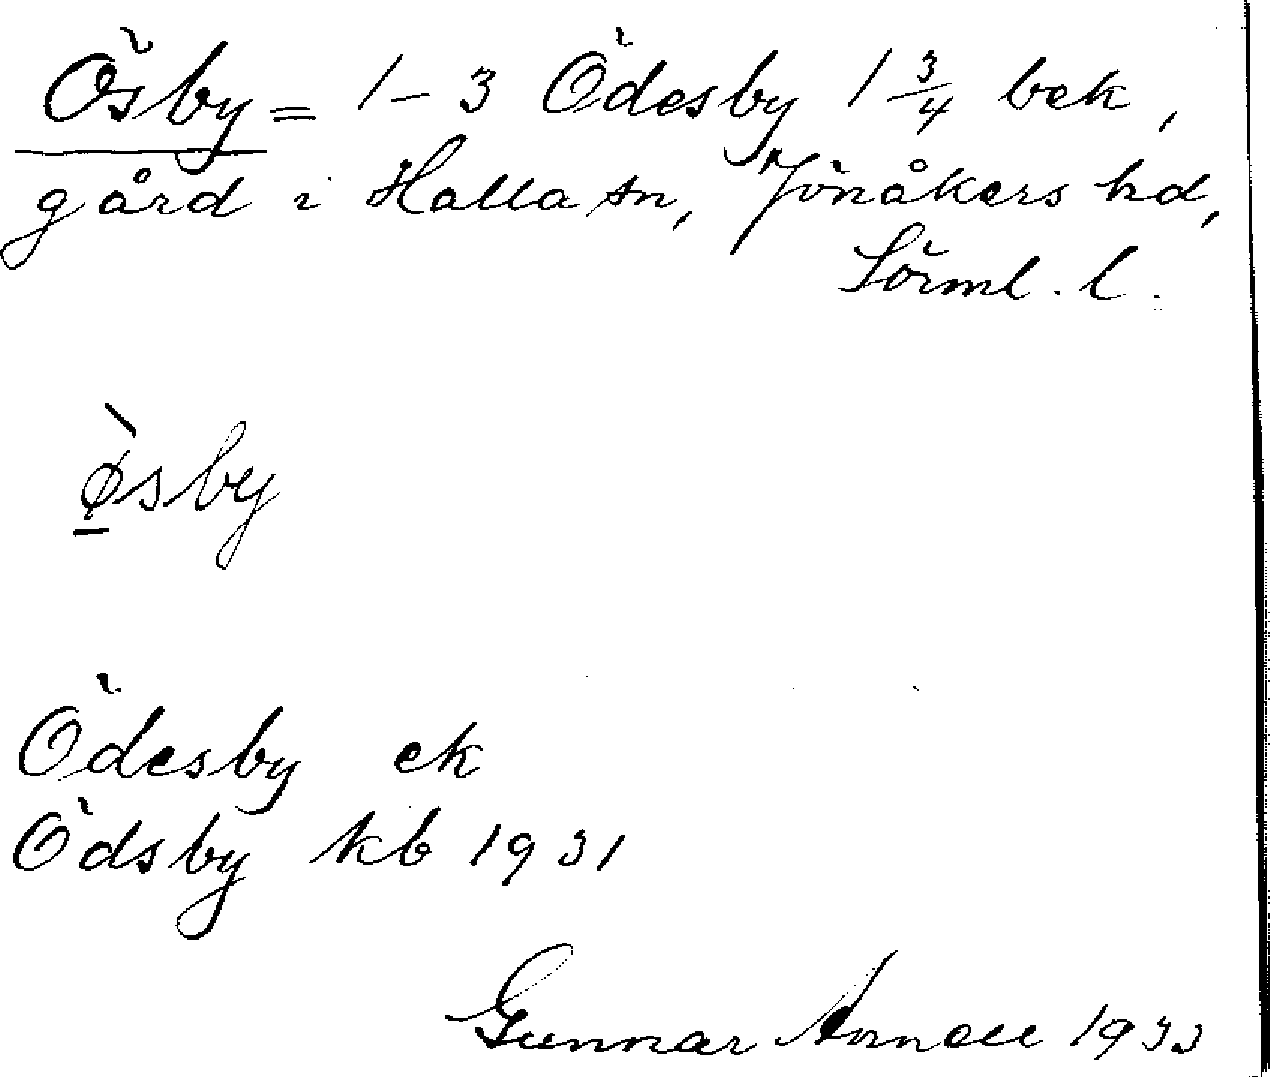 Ösby = 1-3 Ödesby 1 3/4 bek,
gård i Halla sn, Jönåkers hd,
Sörml. l.
ø̀sby
Ödesby ek
Ödsby kb 1931
Gunnar Arnell 1933